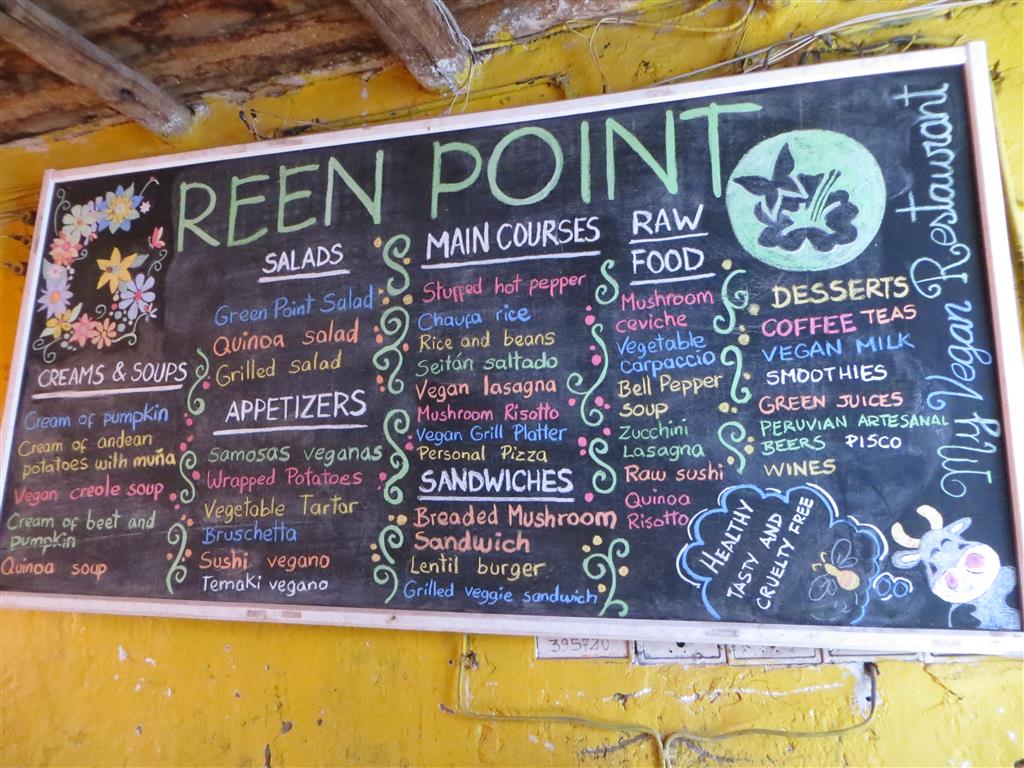 REEN POINT
CREAMS & SOUPS
Cream of pumpkin
Cream of andean
potatoes with muña
Vegan creole soup
Cream of beet and
pumpkin
Quinoa soup
SALADS
Green Point Salad
Quinoa salad
Grilled salad
APPETIZERS
Samosas veganas
Wrapped Potatoes
Vegetable Tartar
Bruschetta
Sushi vegano
Temaki vegano
MAIN COURSES
Stuffed hot pepper
Chaufa rice
Rice and beans
Seitán saltado
Vegan lasagna
Mushroom Risotto
Vegan Grill Platter
Personal Pizza
SANDWICHES
Breaded Mushroom
Sandwich
Lentil burger
Grilled veggie sandwich
RAW
FOOD
Mushroom
ceviche
Vegetable
Carpaccio
Bell Pepper
soup
Zucchini
Lasagna
Raw sushi
Quinoa
Risotto
DESSERTS
COFFEE TEAS
VEGAN MILK
SMOOTHIES
GREEN JUICES
PERUVIAN ARTESANAL
BEERS PISCO
WINES
HEALTHY
TASTY AND
CRUELTY FREE
My Vegan Restaurant
395720